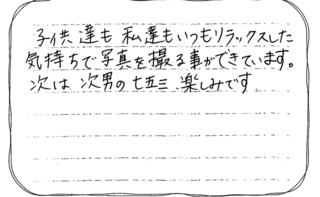 子供達も 私達もいつもリラックスした
気持ちで写真を撮る事ができています。
次は 次男の七五三 楽しみです